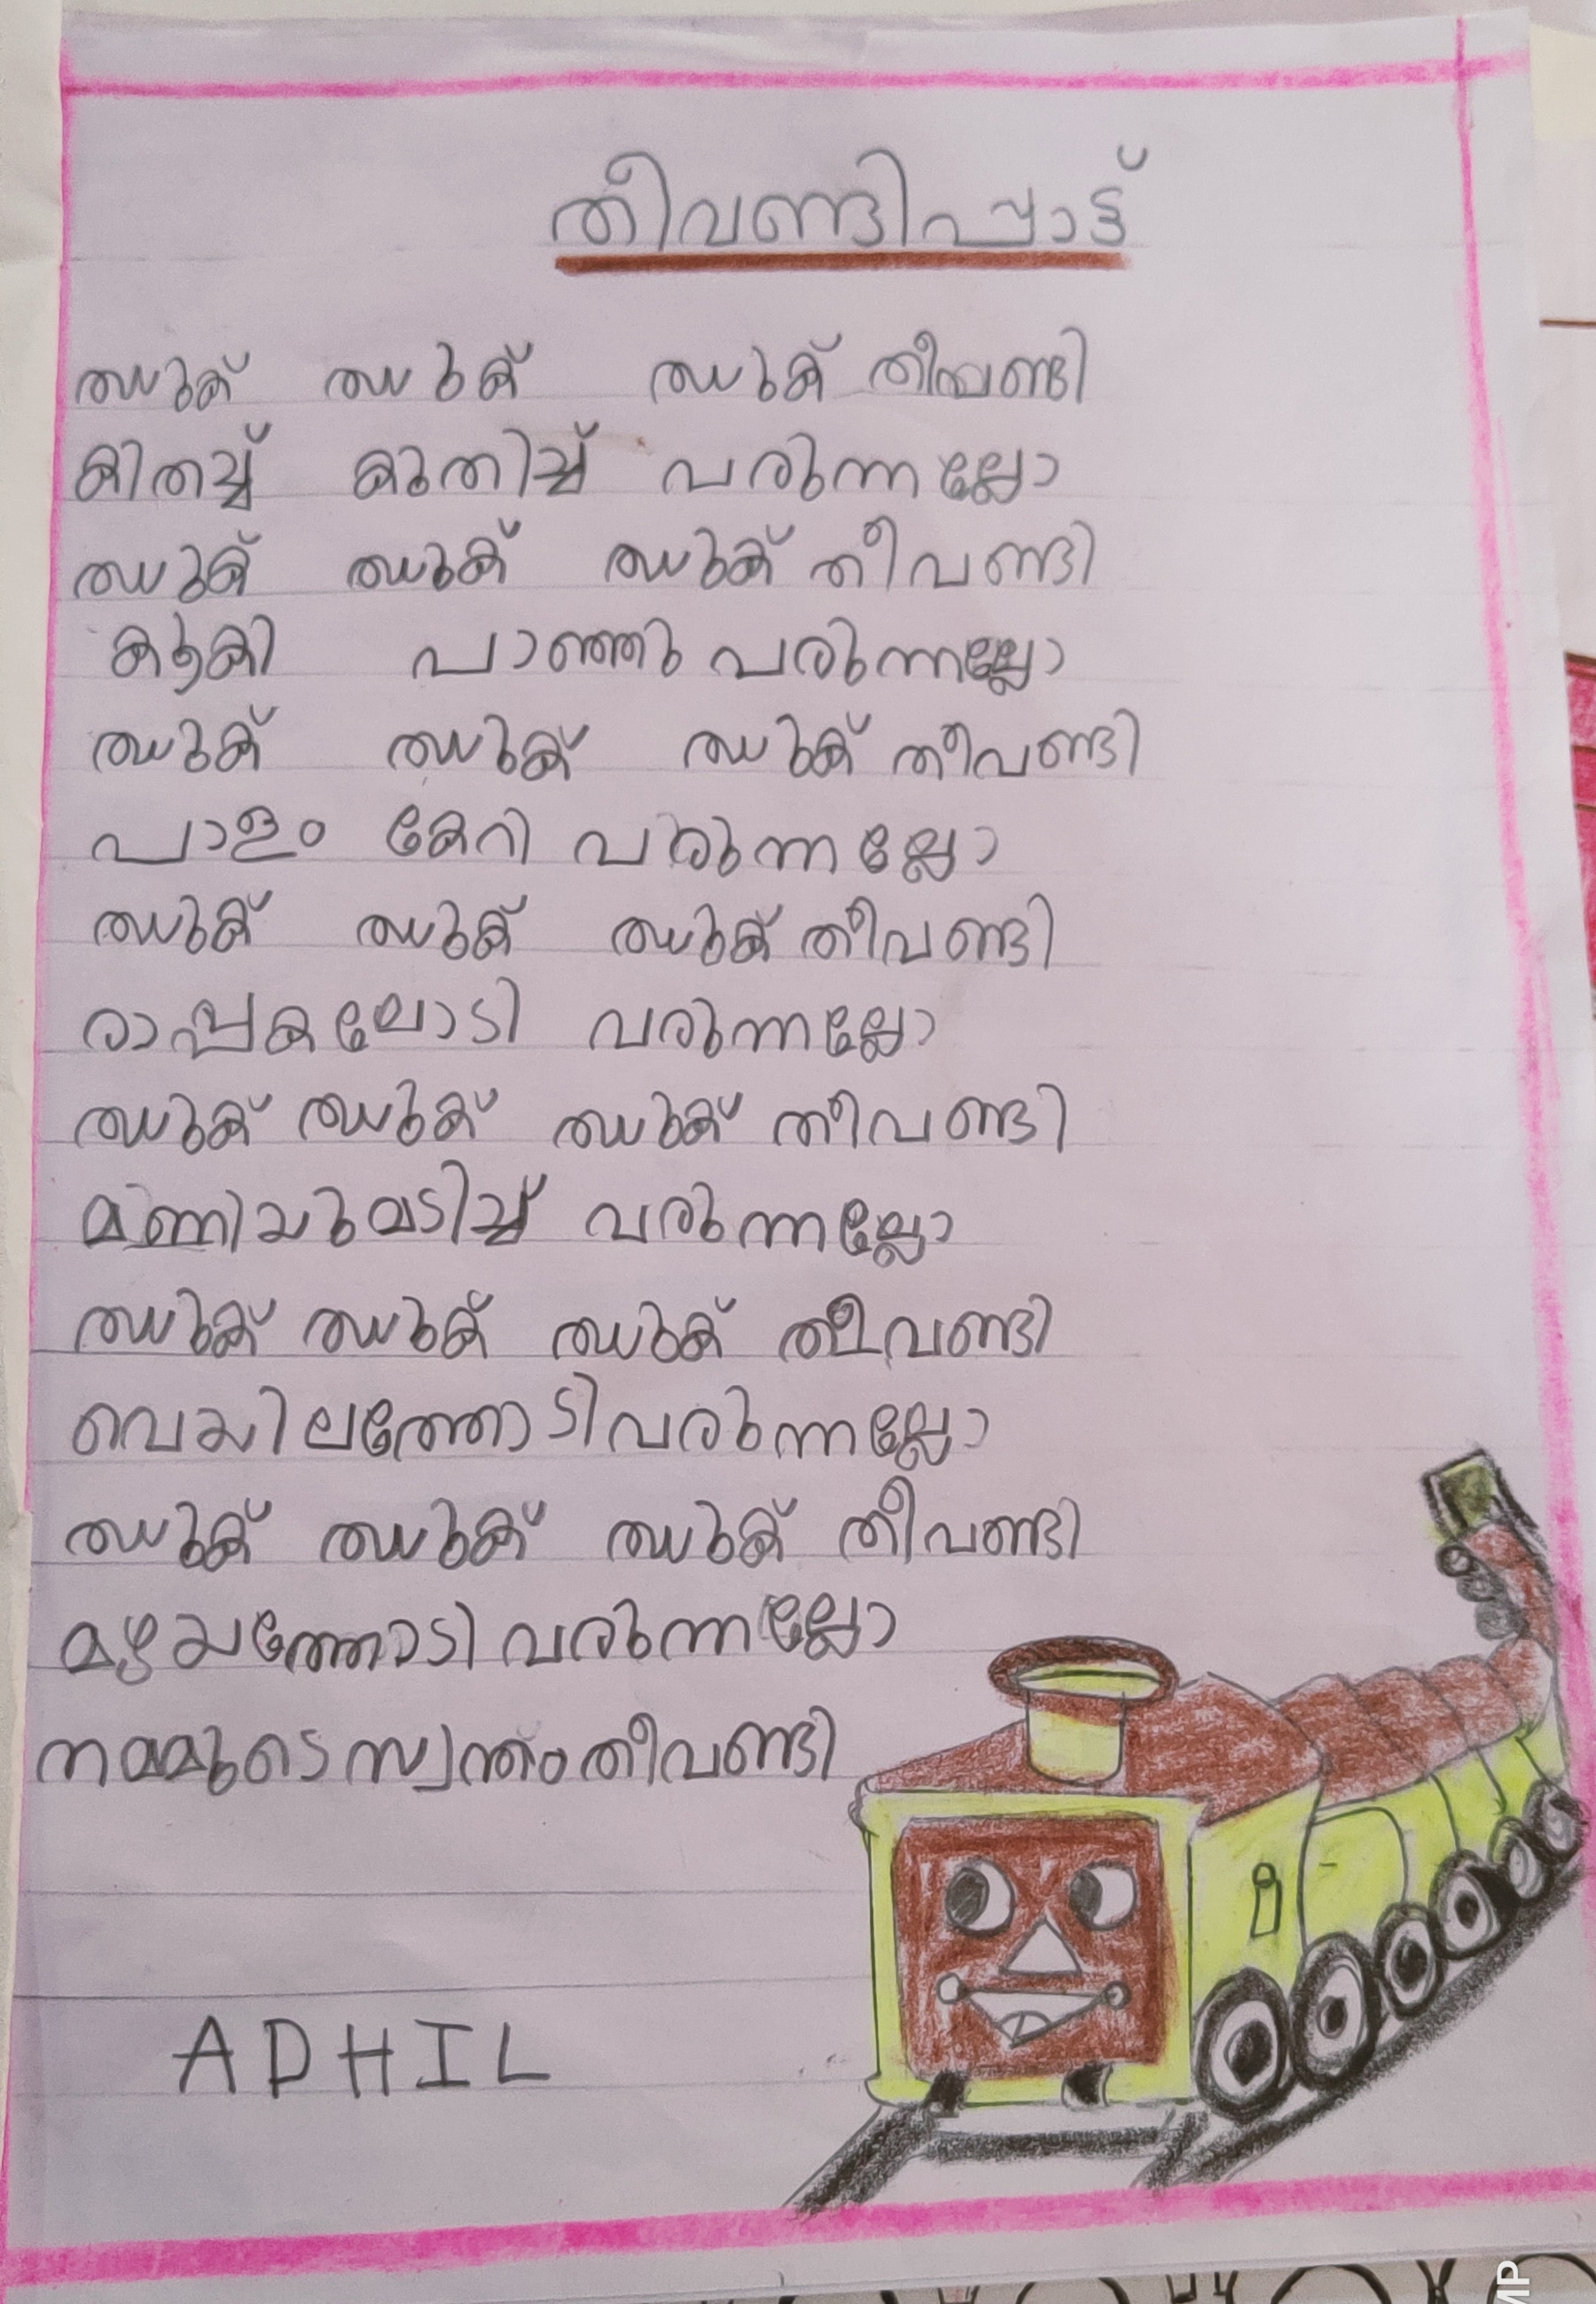 തീവണ്ടിപ്പാട്ട്
ഝുക് ഝുക് ഝുക് തീവണ്ടി
കിതച്ച് കുതിച്ച് വരുന്നല്ലോ
ഝുക് ഝുക് ഝുക് തീവണ്ടി
കൂകി പാഞ്ഞു വരുന്നല്ലോ
ഝുക് ഝുക് ഝുക് തീവണ്ടി
പാളം കേറി വരുന്നല്ലോ
ഝുക് ഝുക് ഝുക് തീവണ്ടി
രാപ്പകലോടി വരുന്നല്ലോ
ഝുക് ഝുക് ഝുക് തീവണ്ടി
മണിയുമടിച്ച് വരുന്നല്ലോ
ഝുക് ഝുക് ഝുക് തീവണ്ടി
വെയിലത്തോടി വരുന്നല്ലോ
ഝുക് ഝുക് ഝുക് തീവണ്ടി
മഴയത്തോടി വരുന്നല്ലോ
നമ്മുടെ സ്വന്തം തീവണ്ടി
ADHIL